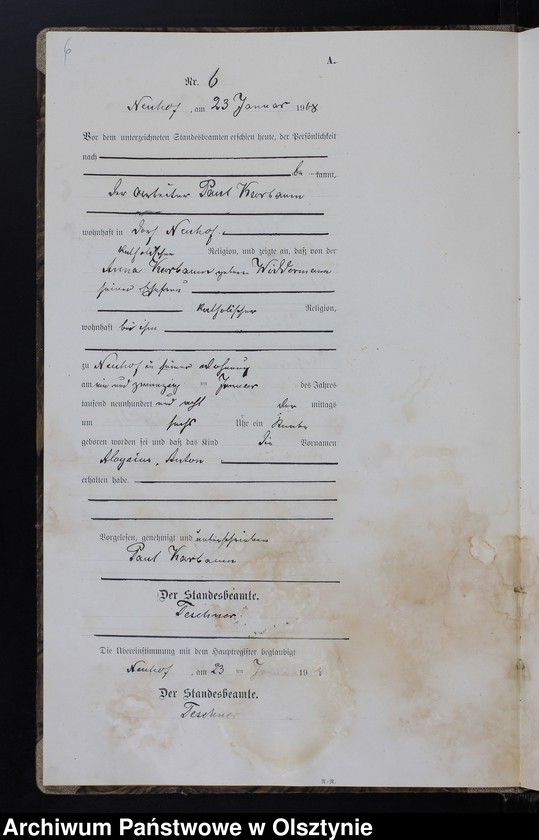 6
A.
Nr. 6
Neuhof, am 23 Januar 1908
Vor dem unterzeichneten Standesbeamten erschien heute, der Persönlichkeit
nach
be kannt,
der Arbeiter Paul Karbaum
wohnhaft in Dorf Neuhof
katholischer Religion, und zeigte an, daß von der
Anna Karbaum geboren Widdermann
seiner Ehefrau
katholischer Religion,
wohnhaft bei ihm
zu Neuhof in seiner Wohnung
am ein und zwanzig ten Januar des Jahres
tausend neunhundert und acht mittags
um sechs Uhr ein Knabe
geboren worden sei und daß das Kind die Vornamen
Aloysius, Anton
erhalten habe.
Vorgelesen, genehmigt und unterschrieben
Paul Karbaum
Der Standesbeamte.
Teschner
Die Übereinstimmung mit dem Hauptregister beglaubigt
Neuhof, am 23 ten Januar 1908
Der Standesbeamte.
Teschner
Archiwum Państwowe w Olsztynie